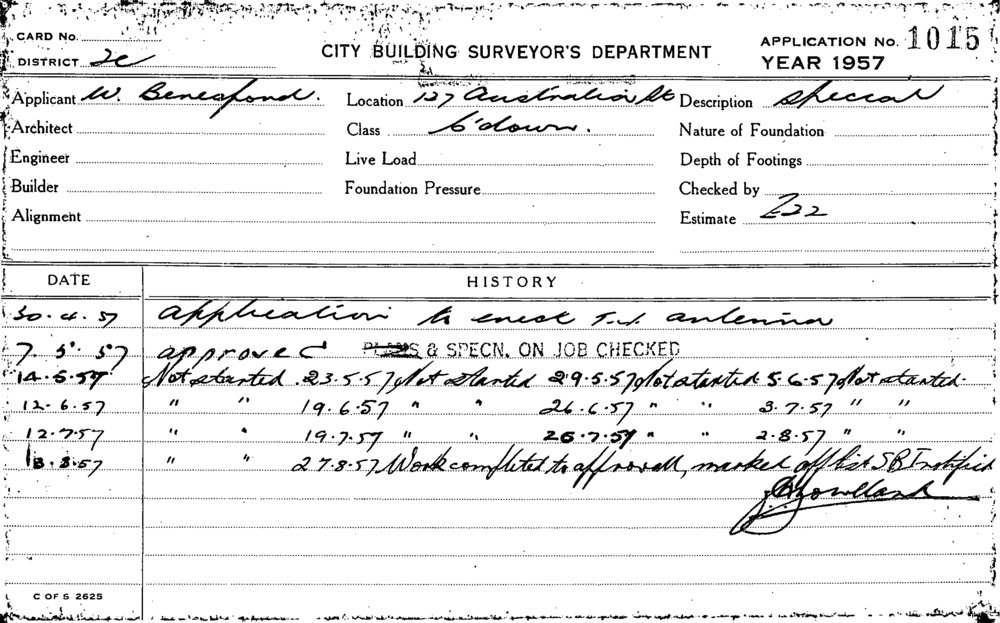 CARD No.
DISTRICT 2c
CITY BUILDING SURVEYOR'S DEPARTMENT
APPLICATION No. 1015
YEAR 1957
Applicant W. Beresford. Location 137 Australia St Description Special
Architect Class C'down. Nature of Foundation
Engineer Live Load Depth of Footings
Builder Foundation Pressure Checked by
Alignment Estimate £22
DATE HISTORY
30.4.57 application to erect T.V. antenna
7.5.57 approved PLANS & SPECN. ON JOB CHECKED
14.5.57 Not started 23.5.57 Not started 29.5.57 Not started 5.6.57 Not started.
12.6.57 " " 19.6.57 " " 26.6.57 " " 3.7.57 " "
12.7.57 " " 19.7.57 " " 26.7.57 " " 2.8.57 " "
13.8.57 " " 27.8.57 Work completed to approval, marked off list
C OF S 2625